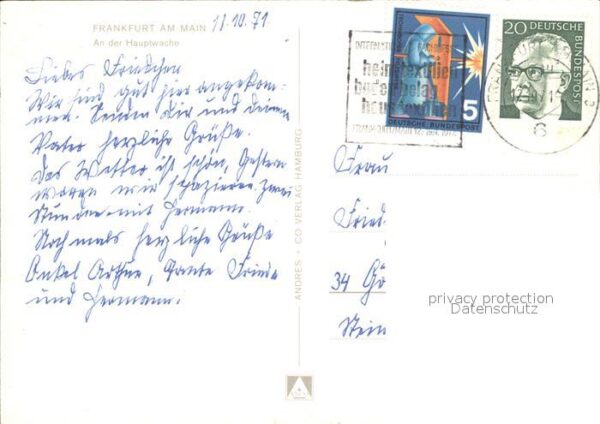 FRANKFURT AM MAIN
An der Hauptwache
11.10.71
Liebes Friedchen
Wir sind gut hier angekom-
men. Senden Dir und deinem
Vater herzliche Grüße.
Das Wetter ist schön, Gestern
waren wir spazieren zwei
Stunden mit Hermann.
Nochmals herzliche Grüße
Onkel Arthur, Tante Frieda
und Hermann.
ANDRES + CO VERLAG HAMBURG
INTERNATIONALE
heimtextilien
bodenbelag
haustextilien
FRANKFURT/MAIN
5
DEUTSCHE BUNDESPOST
20
DEUTSCHE
BUNDESPOST
6
Frau
Fried
34 Gö
Stein
privacy protection
Datenschutz